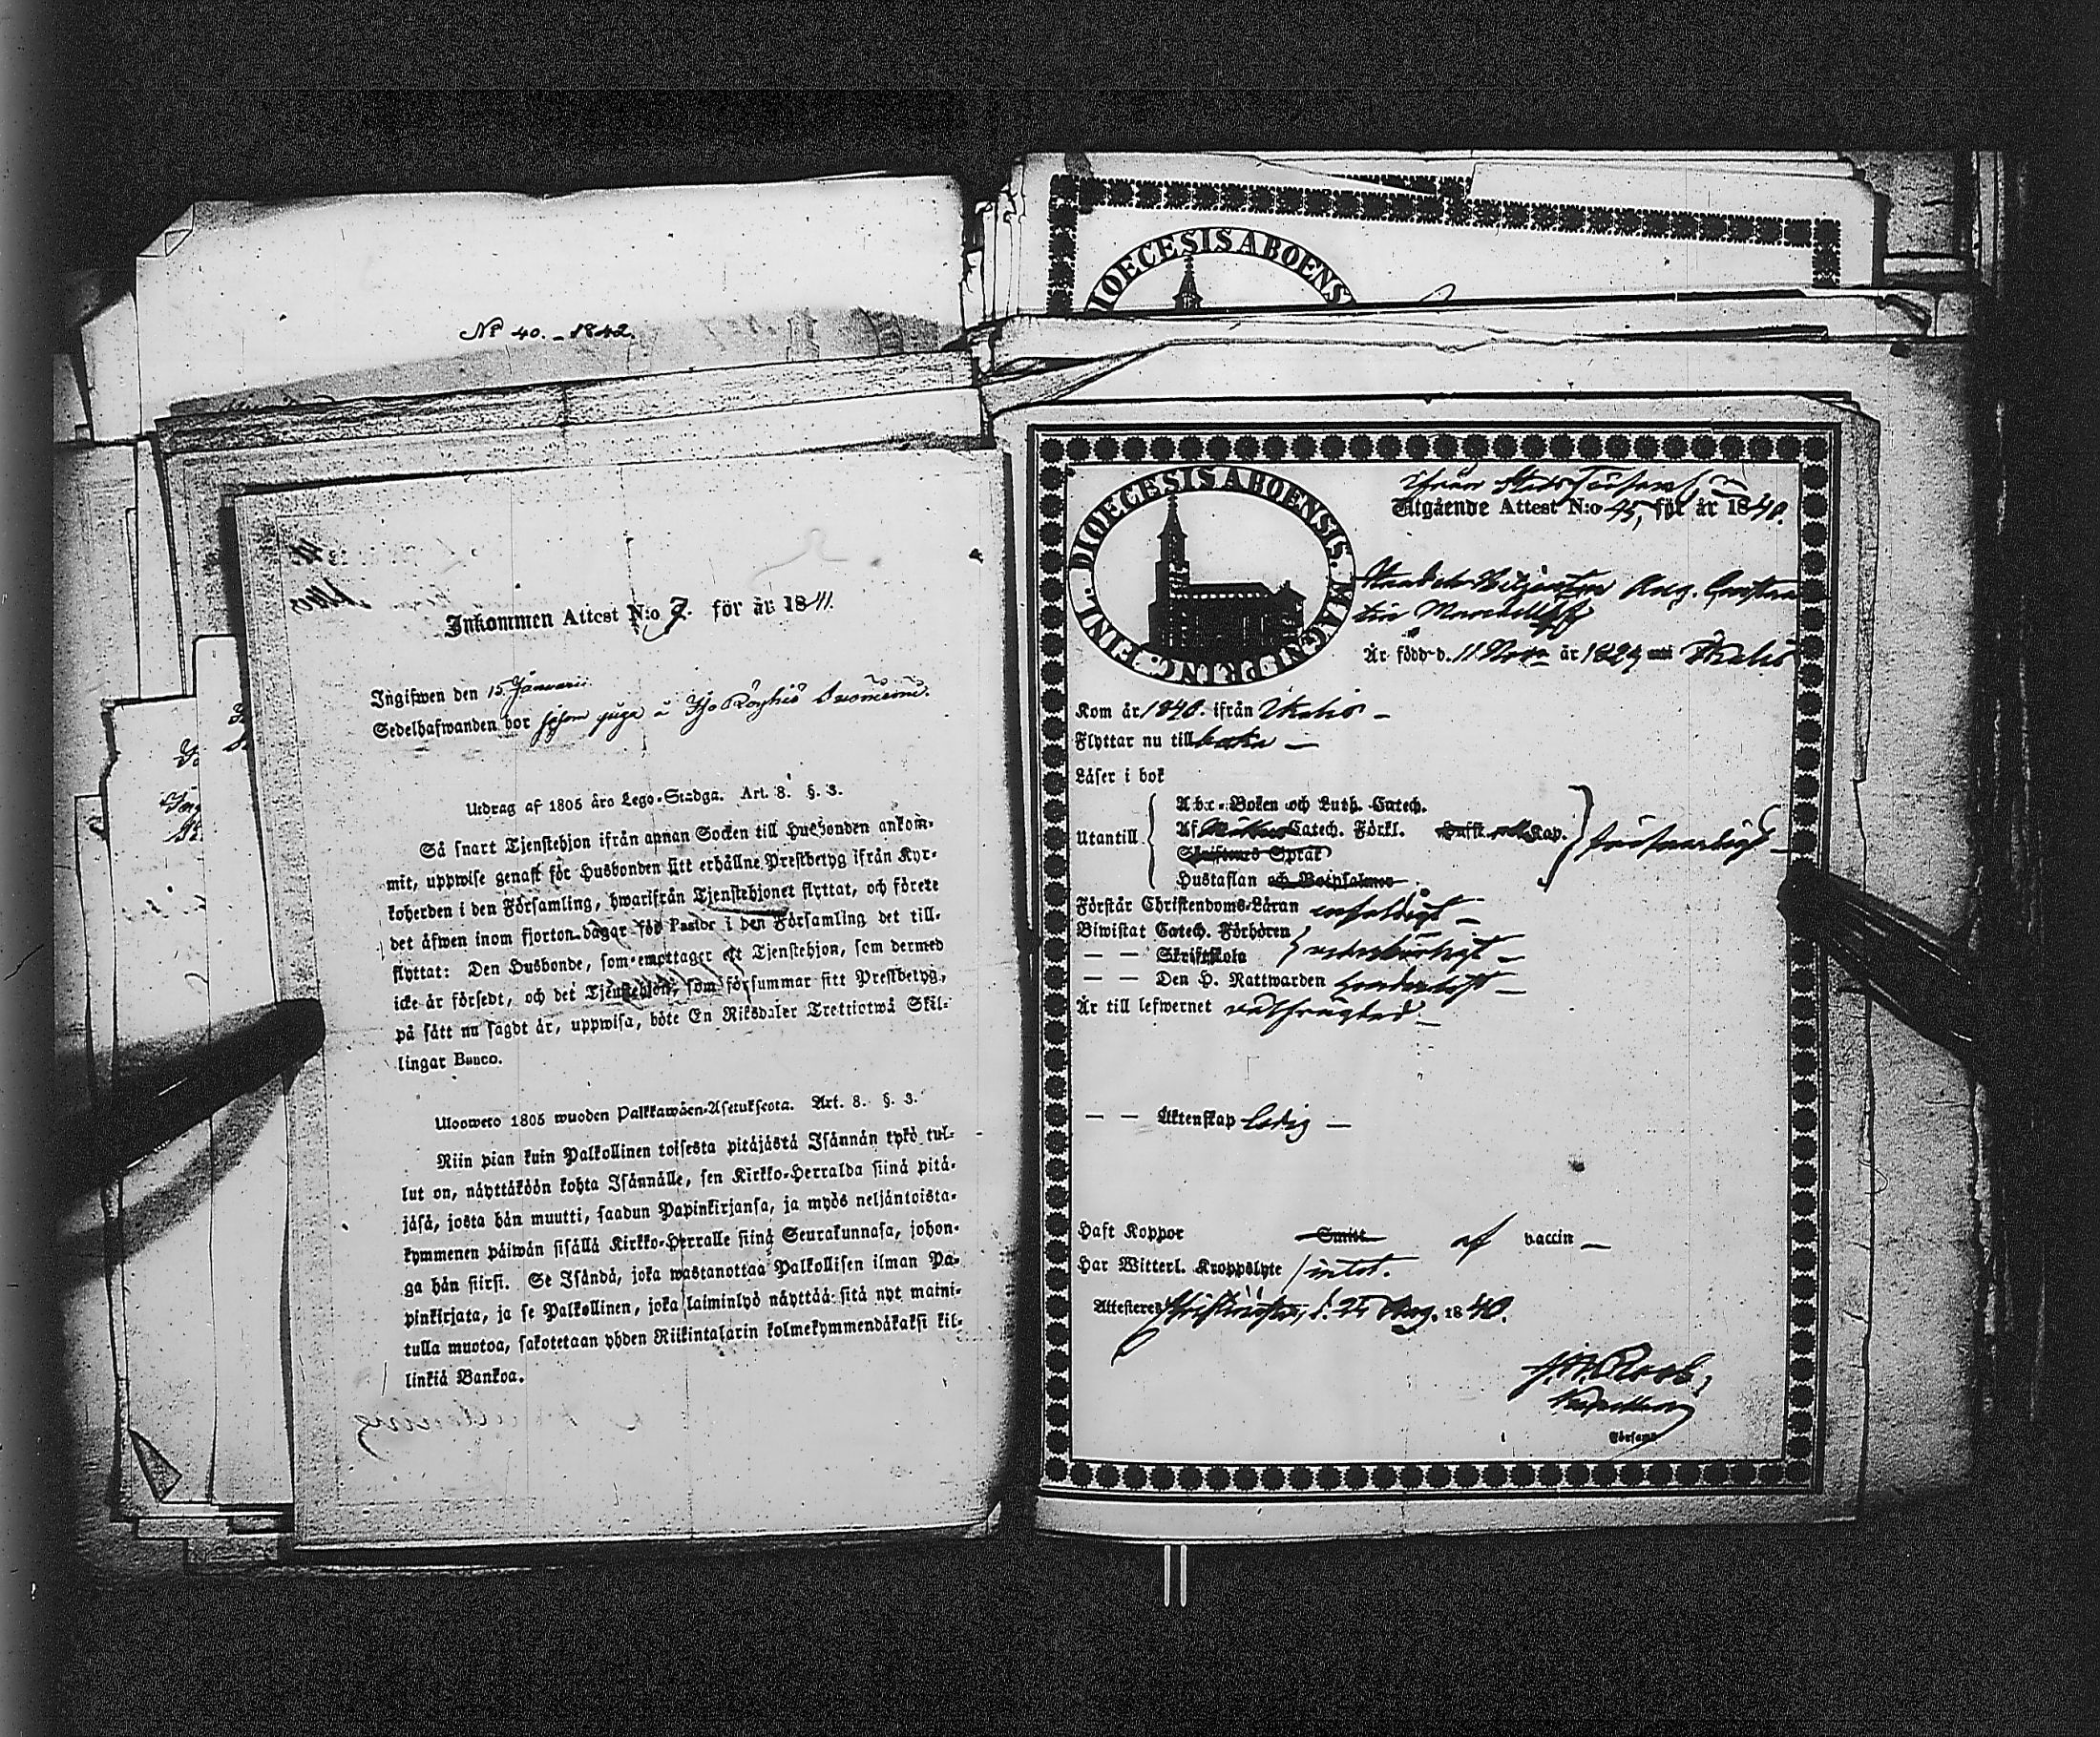 Nº 40. - 1842.
Inkommen Attest N:o 7. för år 1841.
Ingifwen den 15. Januarii
Sedelhafwanden bor såsom piga å
Utdrag af 1805 års Lego-Stadga. Art. 8. §. 3.
Så snart Tjenstehjon ifrån annan Socken till Husbonden ankom-
mit, uppwise genast för Husbonden sitt erhållne Prestbetyg ifrån Kyr-
koherden i den Församling, hwarifrån Tjenstehjonet flyttat, och förete
det äfwen inom fjorton dagar för Pastor i den Församling det till-
flyttat: Den Husbonde, som emottager ett Tjenstehjon, som dermed
icke är försedt, och det Tjenstehjon, som försummar sitt Prestbetyg,
på sätt nu sagdt är, uppwisa, böte En Riksdaler Trettiotwå Skil-
lingar Banco.
Uloswето 1805 wuoden Palkkawäen-Asetuksesta. Art. 8. §. 3.
Niin pian kuin Palkollinen toisesta pitäjästä Isännän tykö tul-
lut on, näyttäköön kohta Isännälle, sen Kirkko-Herralda siinä pitä-
jäsä, josta hän muutti, saadun Papinkirjansa, ja myös neljäntoista-
kymmenen päiwän sisällä Kirkko-Herralle siinä Seurakunnasa, johon-
ga hän siirsi. Se Isändä, joka wastanottaa Palkollisen ilman Pa-
pinkirjata, ja se Palkollinen, joka laiminlyö näyttää sitä nyt maini-
tulla muotoa, sakotetaan yhden Riikintalarin kolmekymmendäkaksi kil-
linkiä Bankoa.
DIOECESIS ABOENS
DIOECESIS ABOENSIS. MAGNI PRINC. FINL.
Utgående Attest N:o 45, för år 1840.
Är född d. 11 Nov. år 1824 Ikalis
Kom år 1840. ifrån Ikalis -
Flyttar nu tillbaka -
Läser i bok
Utantill
Abc-Boken och Luth. Catech.
Af Catech. Förkl. Kap.
Skriftenes Språk
Hustaflan och Botpsalmer
försvarligt -
Förstår Christendoms-Läran enfaldigt -
Biwistat Catech. Förhören
- - Skriftskola
- - Den H. Nattwarden
Är till lefwernet välfrägdad -
- - Äktenskap ledig -
Haft Koppor Smitt. af vaccin -
Har Witterl. Kroppslyte intet.
Attesterer d. 25 Aug. 1840.
Församl.